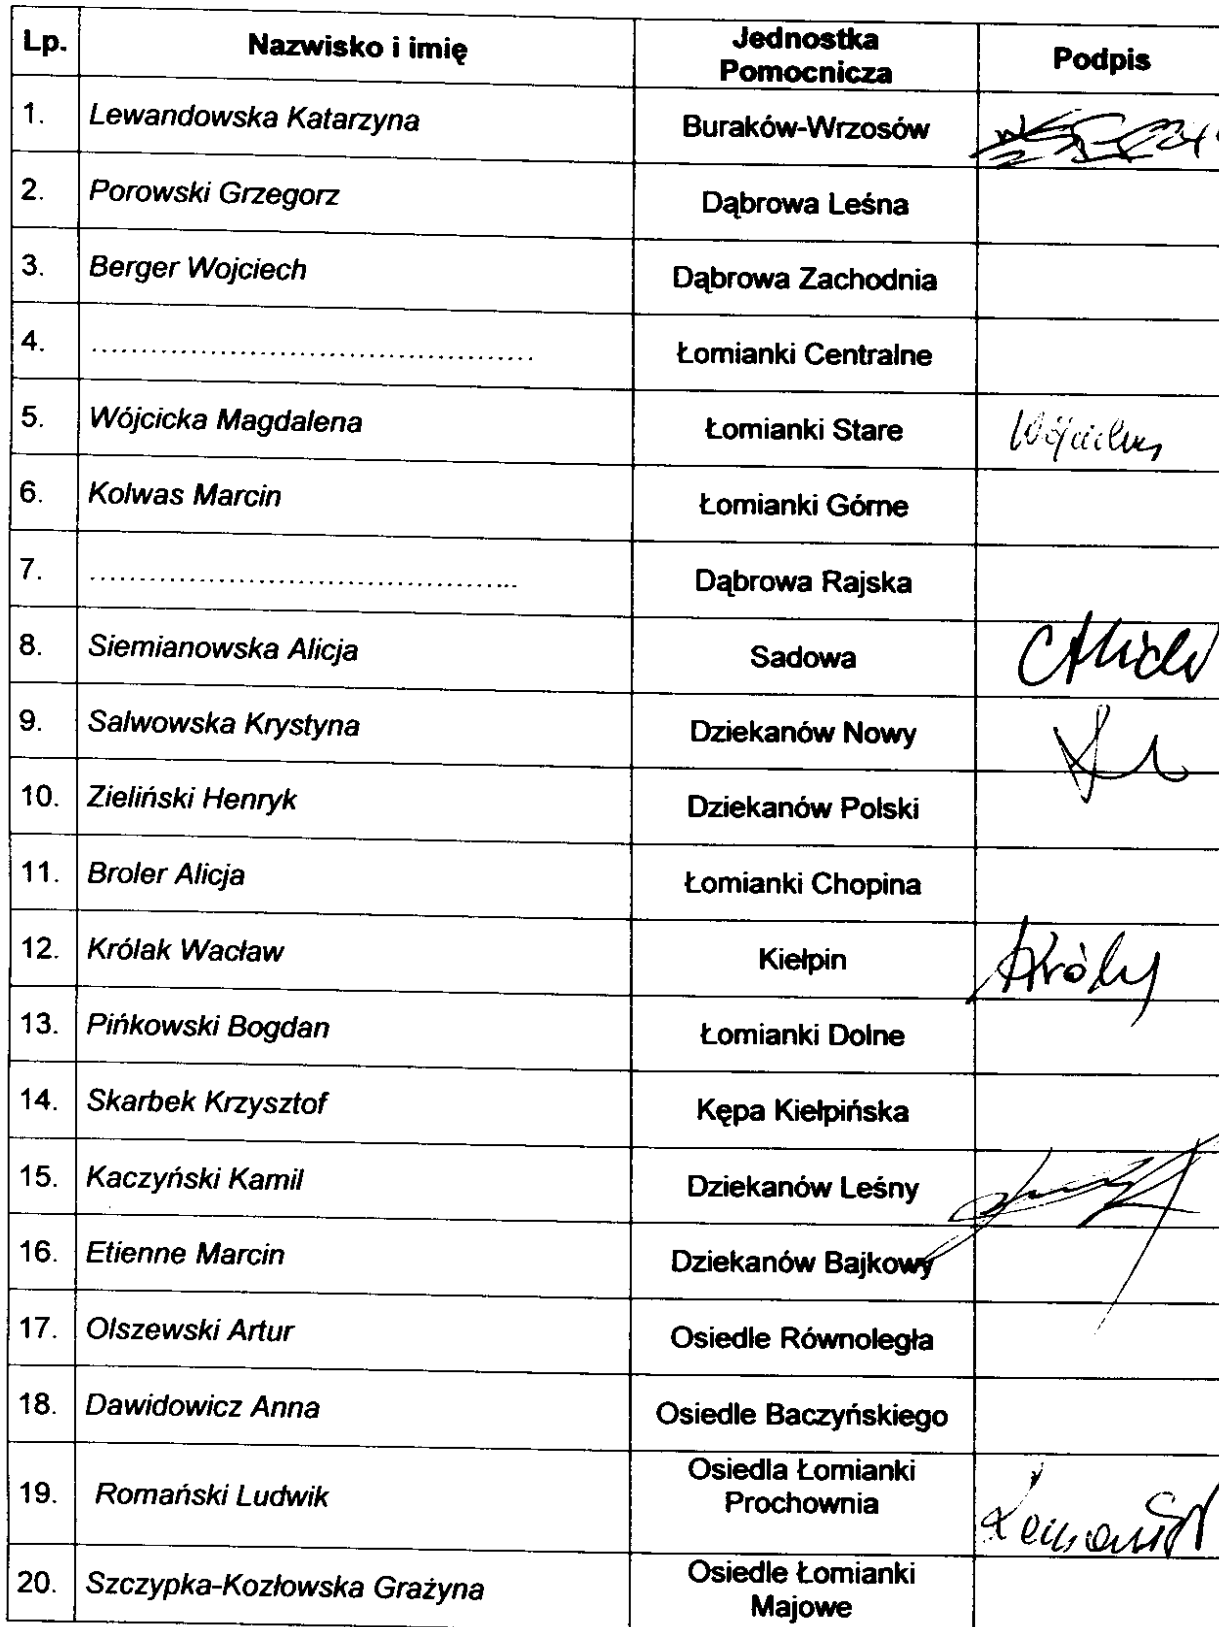 Lp. Nazwisko i imię Jednostka Pomocnicza Podpis
1. Lewandowska Katarzyna Buraków-Wrzosów
2. Porowski Grzegorz Dąbrowa Leśna
3. Berger Wojciech Dąbrowa Zachodnia
4. ............................................ Łomianki Centralne
5. Wójcicka Magdalena Łomianki Stare
6. Kolwas Marcin Łomianki Górne
7. ........................................... Dąbrowa Rajska
8. Siemianowska Alicja Sadowa
9. Salwowska Krystyna Dziekanów Nowy
10. Zieliński Henryk Dziekanów Polski
11. Broler Alicja Łomianki Chopina
12. Królak Wacław Kiełpin
13. Pińkowski Bogdan Łomianki Dolne
14. Skarbek Krzysztof Kępa Kiełpińska
15. Kaczyński Kamil Dziekanów Leśny
16. Etienne Marcin Dziekanów Bajkowy
17. Olszewski Artur Osiedle Równoległa
18. Dawidowicz Anna Osiedle Baczyńskiego
19. Romański Ludwik Osiedla Łomianki Prochownia
20. Szczypka-Kozłowska Grażyna Osiedle Łomianki Majowe